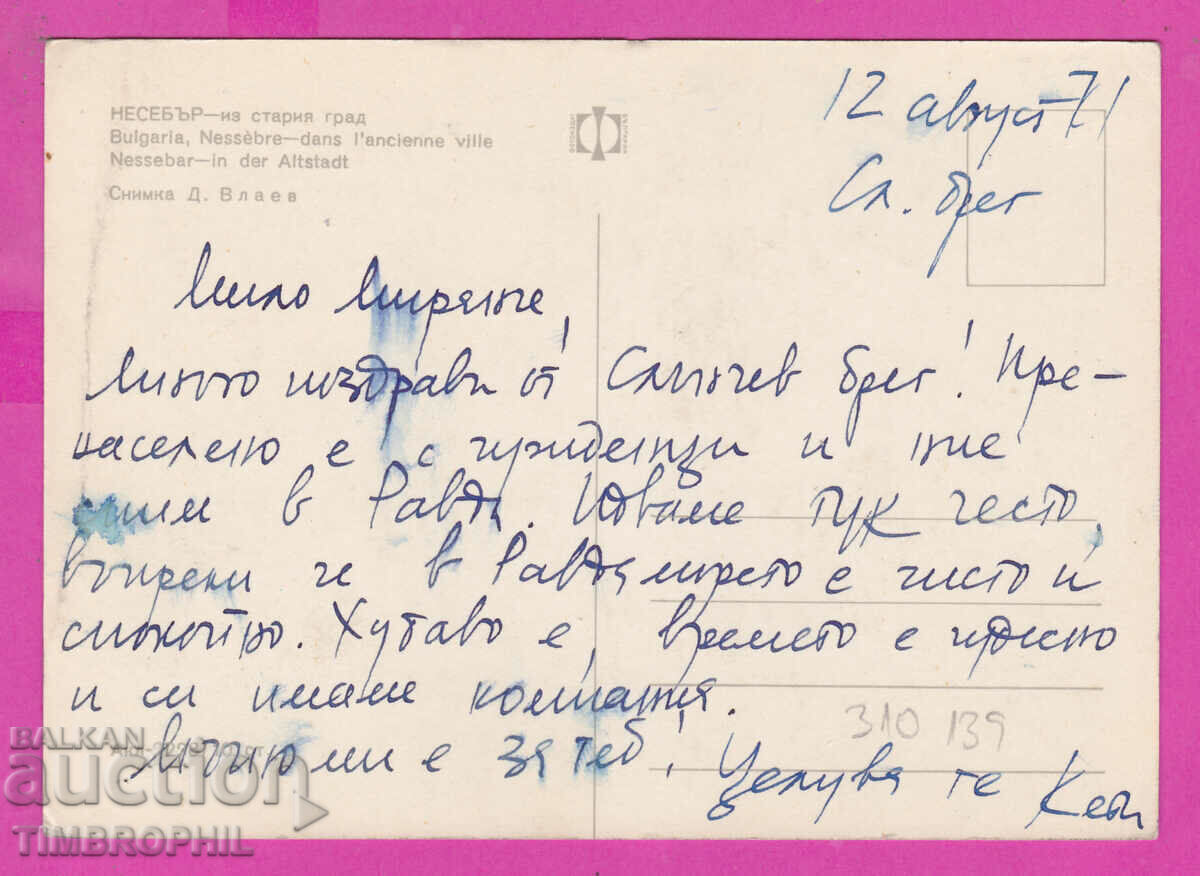 НЕСЕБЪР—из стария град
Bulgaria, Nessèbre—dans l'ancienne ville
Nessebar—in der Altstadt
Снимка Д. Влаев
12 август 71
Сл. бряг
Мило Миренче,
Много поздрави от Слънчев бряг! Пре-
населено е с чужденци и ние
сме в Равда. Идваме тук често,
въпреки че в Равда морето е чисто и
спокойно. Хубаво е, времето е чудесно
и си имаме компания.
Мъчно ми е за теб! Целува те Кети
310 139
BALKAN
auction
TIMBROPHIL